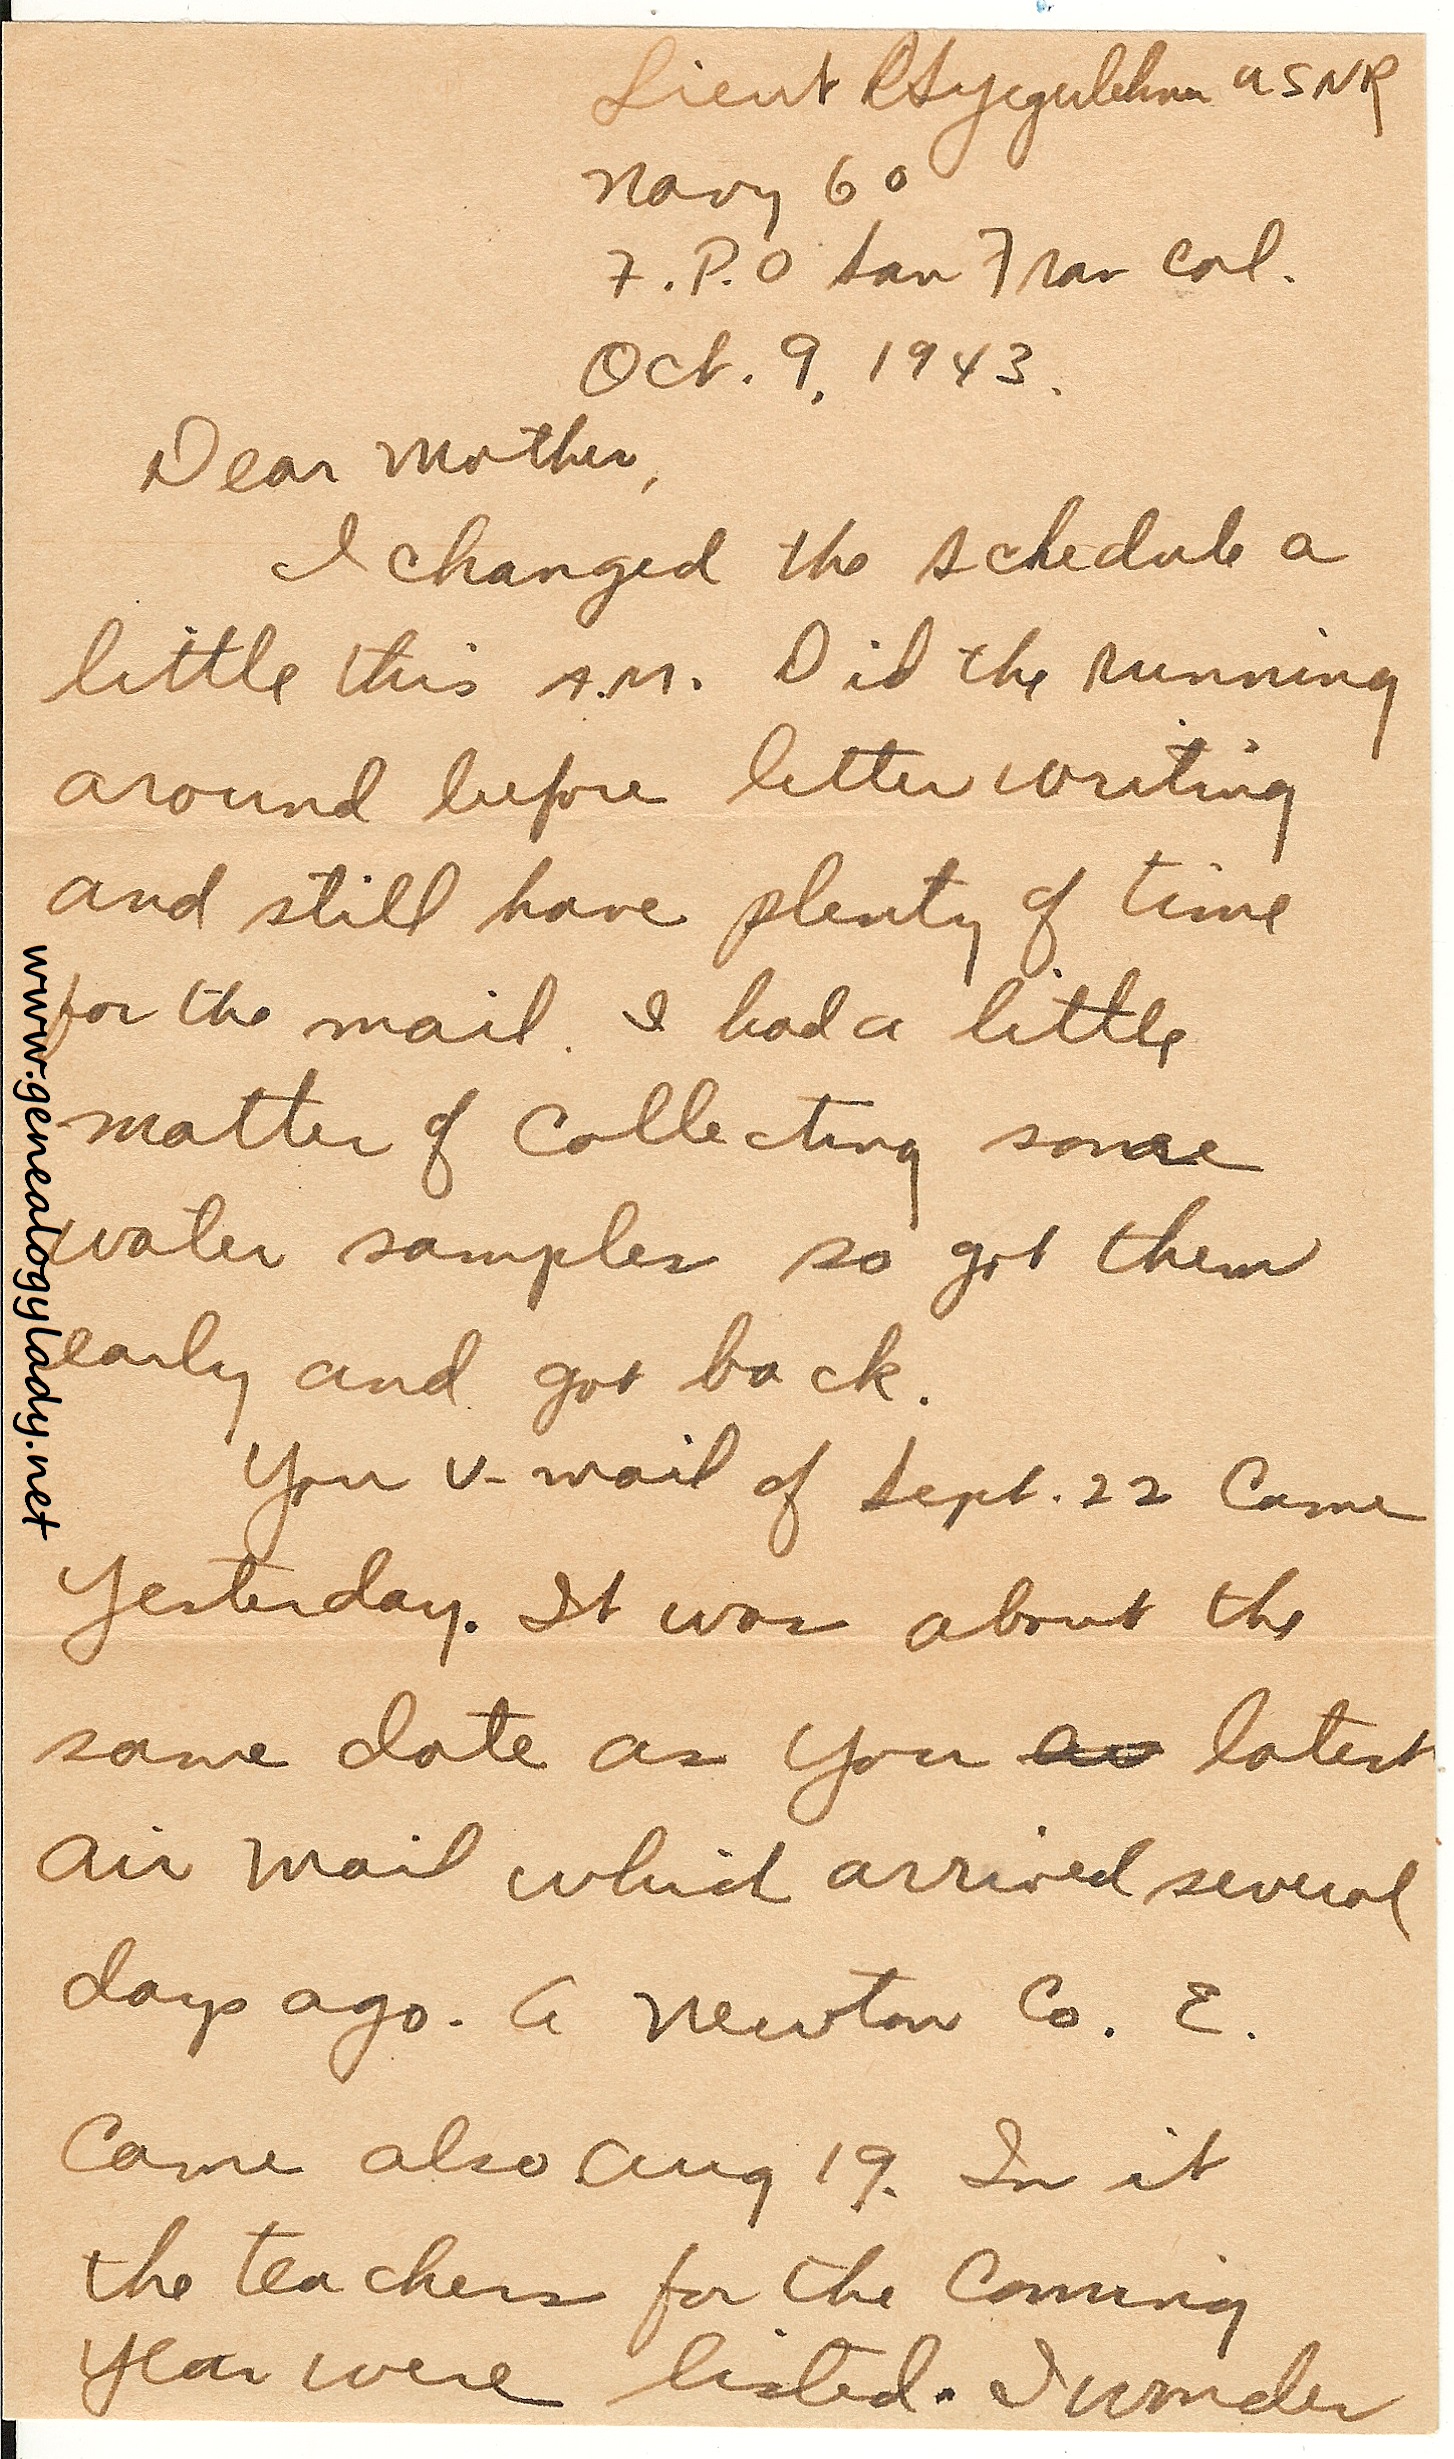 Lieut R S Yegerlehner USNR
Navy 60
F.P.O San Fran Cal.
Oct. 9, 1943.
Dear Mother,
I changed the schedule a
little this A.M. Did the running
around before letter writing
and still have plenty of time
for the mail. I had a little
matter of collecting some
water samples so got them
early and got back.
Your V-mail of Sept. 22 came
yesterday. It was about the
same date as your latest
air mail which arrived several
days ago. A Newton Co. E.
came also Aug 19. In it
the teachers for the coming
year were listed. I wonder
www.genealogylady.net